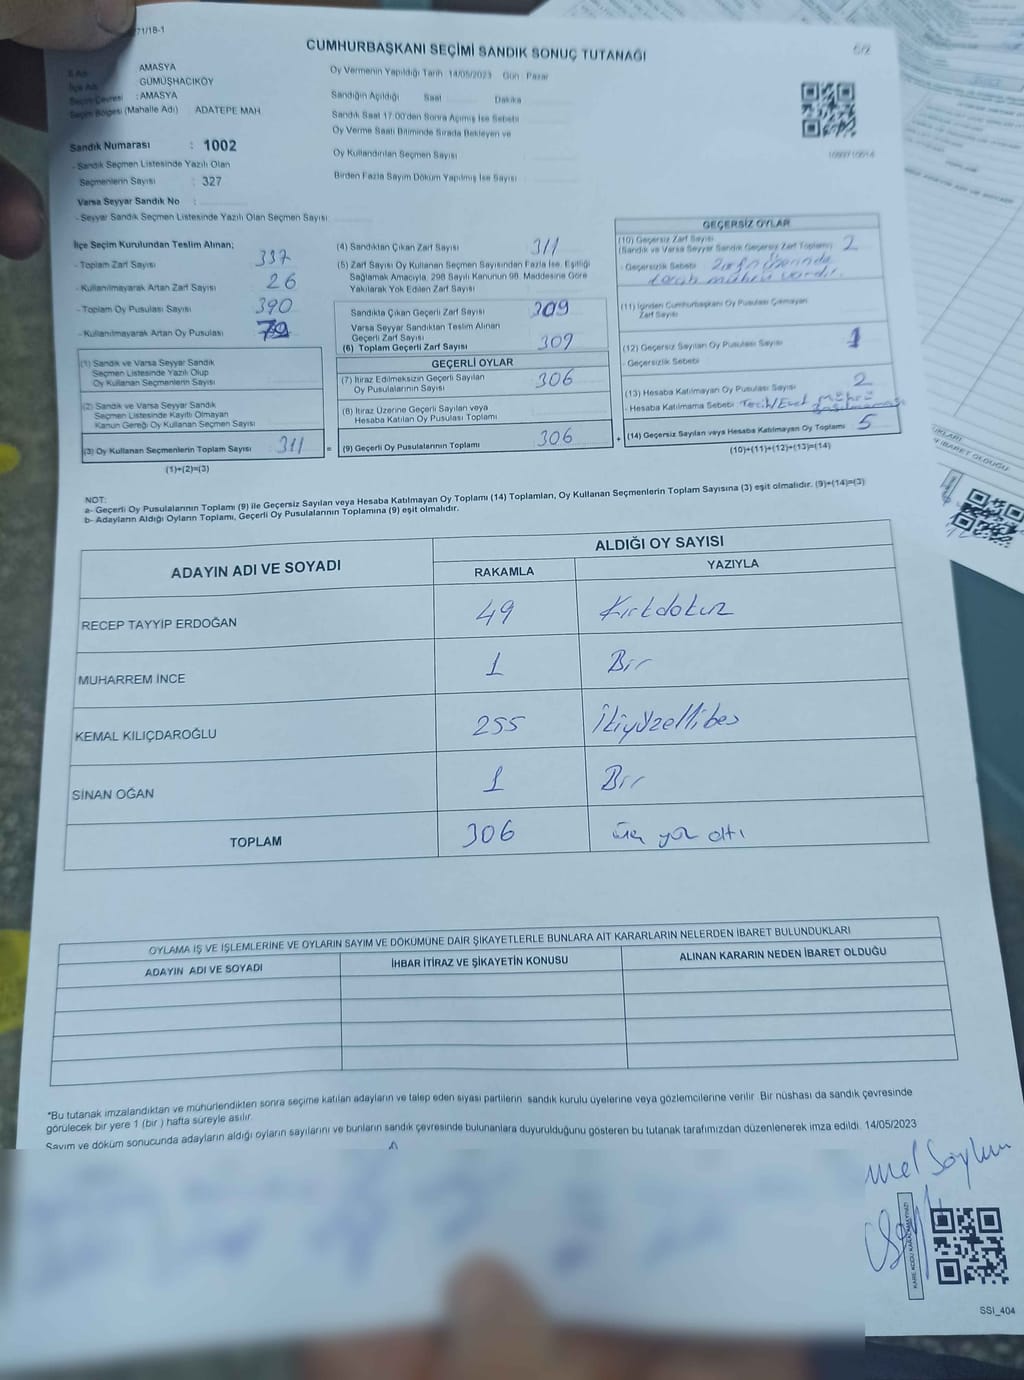 71/1B-1
CUMHURBAŞKANI SEÇİMİ SANDIK SONUÇ TUTANAĞI
İl Adı AMASYA
İlçe Adı GÜMÜŞHACIKÖY
Seçim Çevresi : AMASYA
Seçim Bölgesi (Mahalle Adı) ADATEPE MAH
Sandık Numarası : 1002
- Sandık Seçmen Listesinde Yazılı Olan
Seçmenlerin Sayısı : 327
Varsa Seyyar Sandık No :
- Seyyar Sandık Seçmen Listesinde Yazılı Olan Seçmen Sayısı
Oy Vermenin Yapıldığı Tarih 14/05/2023 Gün Pazar
Sandığın Açıldığı Saat Dakika
Sandık Saat 17.00'den Sonra Açımış İse Sebebi
Oy Verme Saati Bitiminde Sırada Bekleyen ve
Oy Kullandırılan Seçmen Sayısı
Birden Fazla Sayım Döküm Yapılmış İse Sayısı
İlçe Seçim Kurulundan Teslim Alınan;
- Toplam Zarf Sayısı 337
- Kullanılmayarak Artan Zarf Sayısı 26
- Toplam Oy Pusulası Sayısı 390
- Kullanılmayarak Artan Oy Pusulası 79
(1) Sandık ve Varsa Seyyar Sandık
Seçmen Listesinde Yazılı Olup
Oy Kullanan Seçmenlerin Sayısı
(2) Sandık ve Varsa Seyyar Sandık
Seçmen Listesinde Kayıtlı Olmayan
Kanun Gereği Oy Kullanan Seçmen Sayısı
(3) Oy Kullanan Seçmenlerin Toplam Sayısı 311 =
(1)+(2)=(3)
(4) Sandıktan Çıkan Zarf Sayısı 311
(5) Zarf Sayısı Oy Kullanan Seçmen Sayısından Fazla İse, Eşitliği
Sağlamak Amacıyla, 298 Sayılı Kanunun 98. Maddesine Göre
Yakılarak Yok Edilen Zarf Sayısı
Sandıkta Çıkan Geçerli Zarf Sayısı 309
Varsa Seyyar Sandıktan Teslim Alınan
Geçerli Zarf Sayısı
(6) Toplam Geçerli Zarf Sayısı 309
GEÇERLİ OYLAR
(7) İtiraz Edilmeksizin Geçerli Sayılan
Oy Pusulalarının Sayısı 306
(8) İtiraz Üzerine Geçerli Sayılan veya
Hesaba Katılan Oy Pusulası Toplamı
(9) Geçerli Oy Pusulalarının Toplamı 306 +
GEÇERSİZ OYLAR
(10) Geçersiz Zarf Sayısı 2
(Sandık ve Varsa Seyyar Sandık Geçersiz Zarf Toplamı)
- Geçersizlik Sebebi Zarfın üzerinde
tercih mührü vardı.
(11) İçinden Cumhurbaşkanı Oy Pusulası Çıkmayan
Zarf Sayısı
(12) Geçersiz Sayılan Oy Pusulası Sayısı 1
- Geçersizlik Sebebi
(13) Hesaba Katılmayan Oy Pusulası Sayısı 2
- Hesaba Katılmama Sebebi Tercih/Evet Mührü
(14) Geçersiz Sayılan veya Hesaba Katılmayan Oy Toplamı 5
(10)+(11)+(12)+(13)=(14)
NOT:
a- Geçerli Oy Pusulalarının Toplamı (9) ile Geçersiz Sayılan veya Hesaba Katılmayan Oy Toplamı (14) Toplamları, Oy Kullanan Seçmenlerin Toplam Sayısına (3) eşit olmalıdır. (9)+(14)=(3)
b- Adayların Aldığı Oyların Toplamı, Geçerli Oy Pusulalarının Toplamına (9) eşit olmalıdır.
ADAYIN ADI VE SOYADI
ALDIĞI OY SAYISI
RAKAMLA YAZIYLA
RECEP TAYYİP ERDOĞAN 49 Kırkdokuz
MUHARREM İNCE 1 Bir
KEMAL KILIÇDAROĞLU 255 İkiyüzellibeş
SİNAN OĞAN 1 Bir
TOPLAM 306 üç yüz altı
OYLAMA İŞ VE İŞLEMLERİNE VE OYLARIN SAYIM VE DÖKÜMÜNE DAİR ŞİKAYETLERLE BUNLARA AİT KARARLARIN NELERDEN İBARET BULUNDUKLARI
ADAYIN ADI VE SOYADI İHBAR İTİRAZ VE ŞİKAYETİN KONUSU ALINAN KARARIN NEDEN İBARET OLDUĞU
*Bu tutanak imzalandıktan ve mühürlendikten sonra seçime katılan adayların ve talep eden siyasi partilerin sandık kurulu üyelerine veya gözlemcilerine verilir. Bir nüshası da sandık çevresinde
görülecek bir yere 1 (bir ) hafta süreyle asılır.
Sayım ve döküm sonucunda adayların aldığı oyların sayılarını ve bunların sandık çevresinde bulunanlara duyurulduğunu gösteren bu tutanak tarafımızdan düzenlenerek imza edildi. 14/05/2023
SSI_404